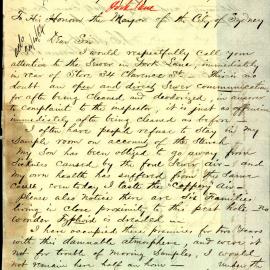 York Lane
To His Honour the Mayor of the City of Sydney
Dear Sir
I would respectfully call your
attention to the Sewer in York Lane, immediately
in rear of Store 34 Clarence St. There is no
doubt an open and direct Sewer communication
for after being cleaned and deodorized, in answer
to complaint to the inspector, it is just as offensive
immediately after being cleaned as before
I often have people refuse to stay in my
Sample room on account of the stench
My Son has been obliged to go away from
Sickness caused by the foul Sewer air and my
own health has suffered from the same
cause, even today I taste the "Coppery" air
please also notice there are Six Families
living in close proximity to this hole no
wonder Typhoid is
I have occupied these premises for two years
with this damnable atmosphere, and were it
not for trouble of moving Samples, I would
not remain here half an hour
under the